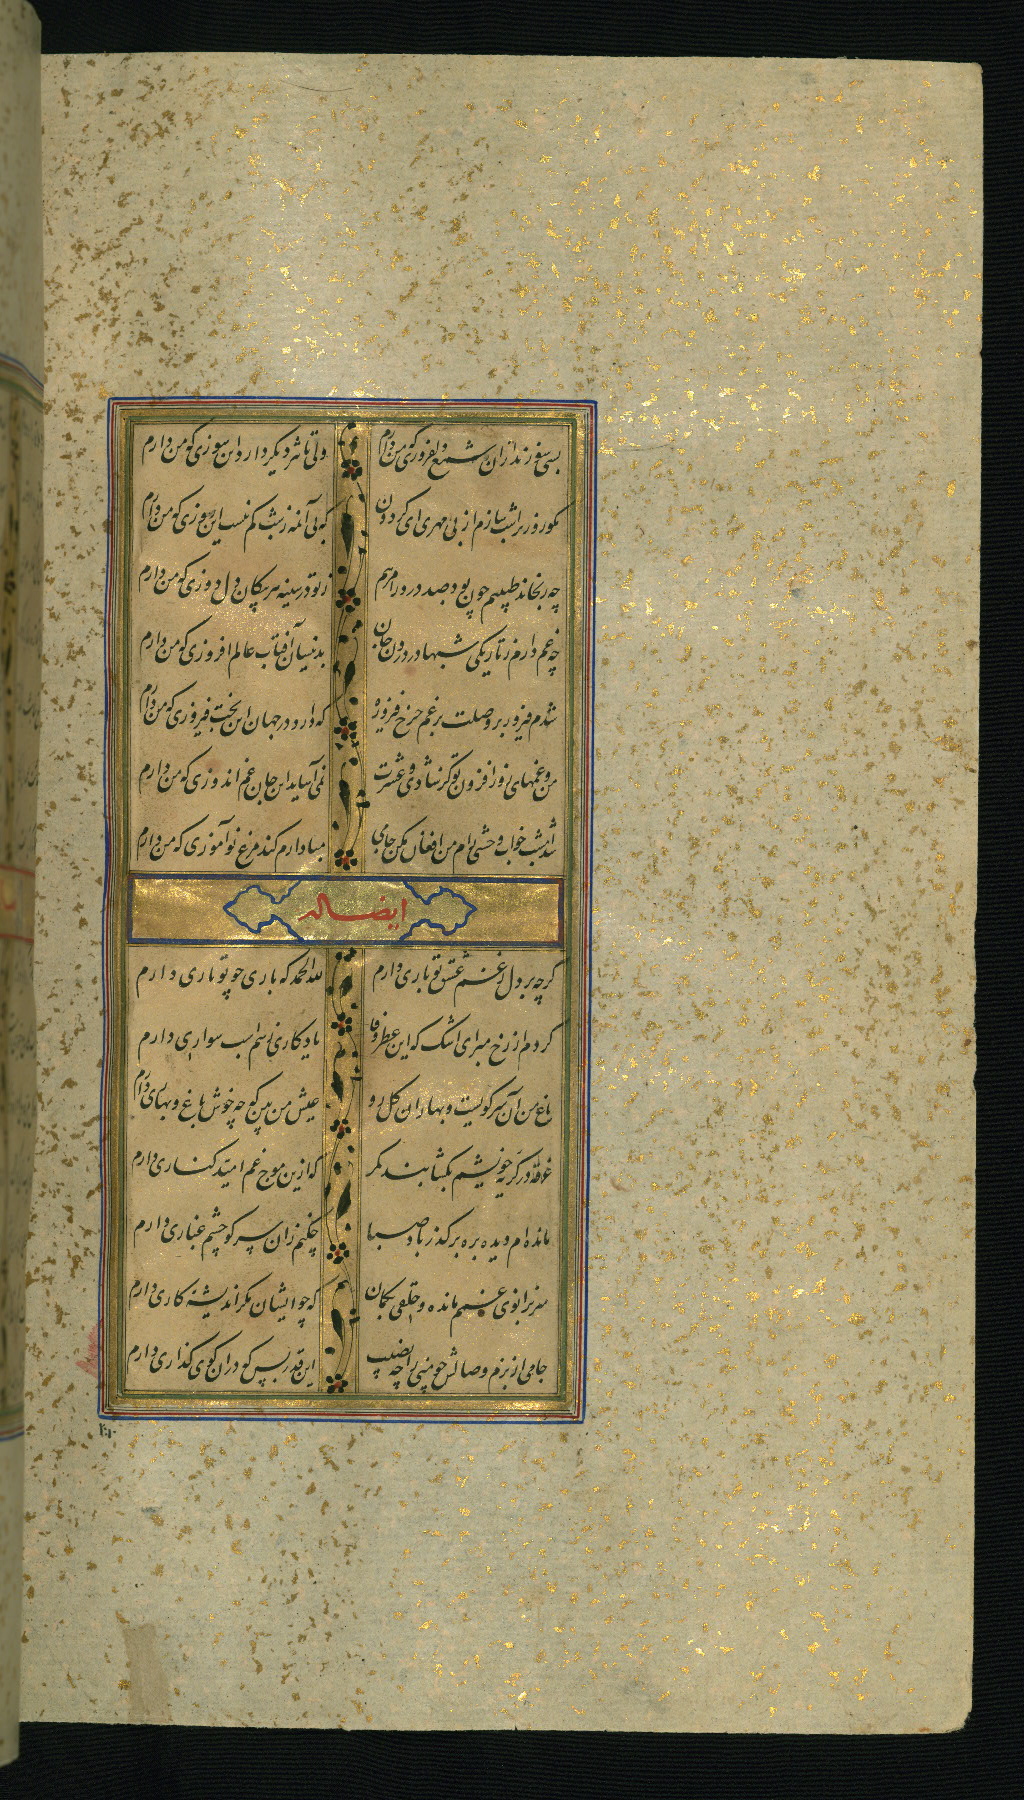 بسی سوزند ازان شمع دلفروزی که من دارم
ولی تاثیر دیگر دارد این سوزی که من دارم
مگو روز مرا شب سازم از بی مهری ای گردون
که بی آن مه ز شب کم نیست این روزی که من دارم
چه رنجاند طبیبم چون بود صد درد را مرهم
ز تو در سینه هر پیکان دل دوزی که من دارم
چه غم دارم ز تاریکی شبها در درون جان
بدینسان آفتاب عالم افروزی که من دارم
شدم فیروز بر وصلت برغم چرخ فیروزه
که دارد در جهان این بخت فیروزی که من دارم
من و غمهای روز افزون تو گر شادی و عشرت
نمی آساید این جان غم اندوزی که من دارم
شد امشب خواب وحشی رام من افغان مکن جامی
مبادا رم کند مرغ نوآموزی که من دارم
ایضا له
گرچه بر دل ز غم عشق تو باری دارم
لله الحمد که باری چو تو یاری دارم
کردم از رخ مبر ای اشک که این عطر وفا
یادگاری ز سم اسب سواری دارم
باغ من آن سر کویست و بهاران گل رو
عیش من بین که چه خوش باغ و بهاری دارم
غرقه در گریه خویشم بگشا بند کمر
که ازین موج غم امید کناری دارم
مانده ام دیده بره بر گذر باد صبا
چکنم زان سر کو چشم غباری دارم
سر بزانوی غمم مانده و خلقی بگمان
که چو ایشان مگر اندیشه کاری دارم
جامی از بزم وصالش چو منی را چه نصیب
این قدر بس که دران کوی گذاری دارم